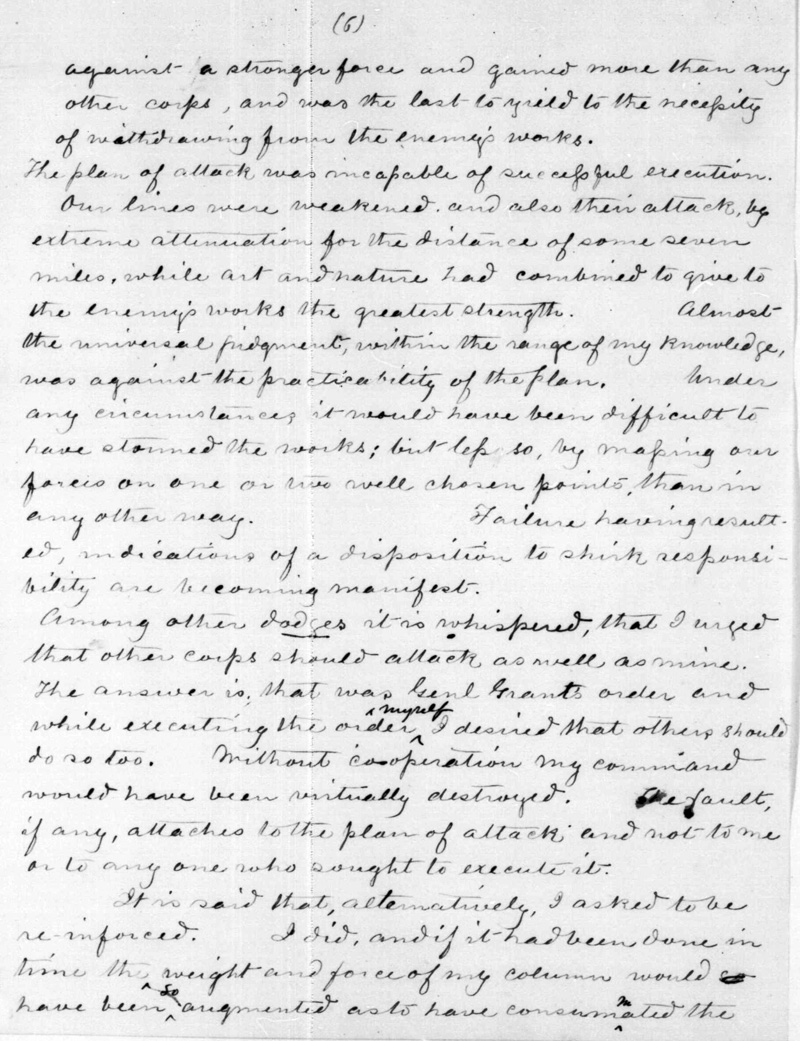 (6)
against a stronger force and gained more than any
other corps, and was the last to yield to the necessity
of withdrawing from the enemy's works.
The plan of attack was incapable of successful execution.
Our lines were weakened. and also their attack, by
extreme attenuation for the distance of some seven
miles, while art and nature had combined to give to
the enemy's works the greatest strength. Almost
the universal judgment, within the range of my knowledge,
was against the practicability of the plan. Under
any circumstances it would have been difficult to
have stormed the works; but less so, by massing our
forces on one or two well chosen points, than in
any other way. Failure having result-
ed, indications of a disposition to shirk responsi-
bility are becoming manifest.
Among other dodges it is whispered, that I urged
that other corps should attack as well as mine.
The answer is, that was Genl Grant's order and
while executing the order myself, I desired that others should
do so too. Without cooperation my command
would have been virtually destroyed. The fault,
if any, attaches to the plan of attack and not to me
or to any one who sought to execute it.
It is said that, alternatively, I asked to be
re-inforced. I did, and if it had been done in
time the weight and force of my column would
have been so augmented as to have consummated the